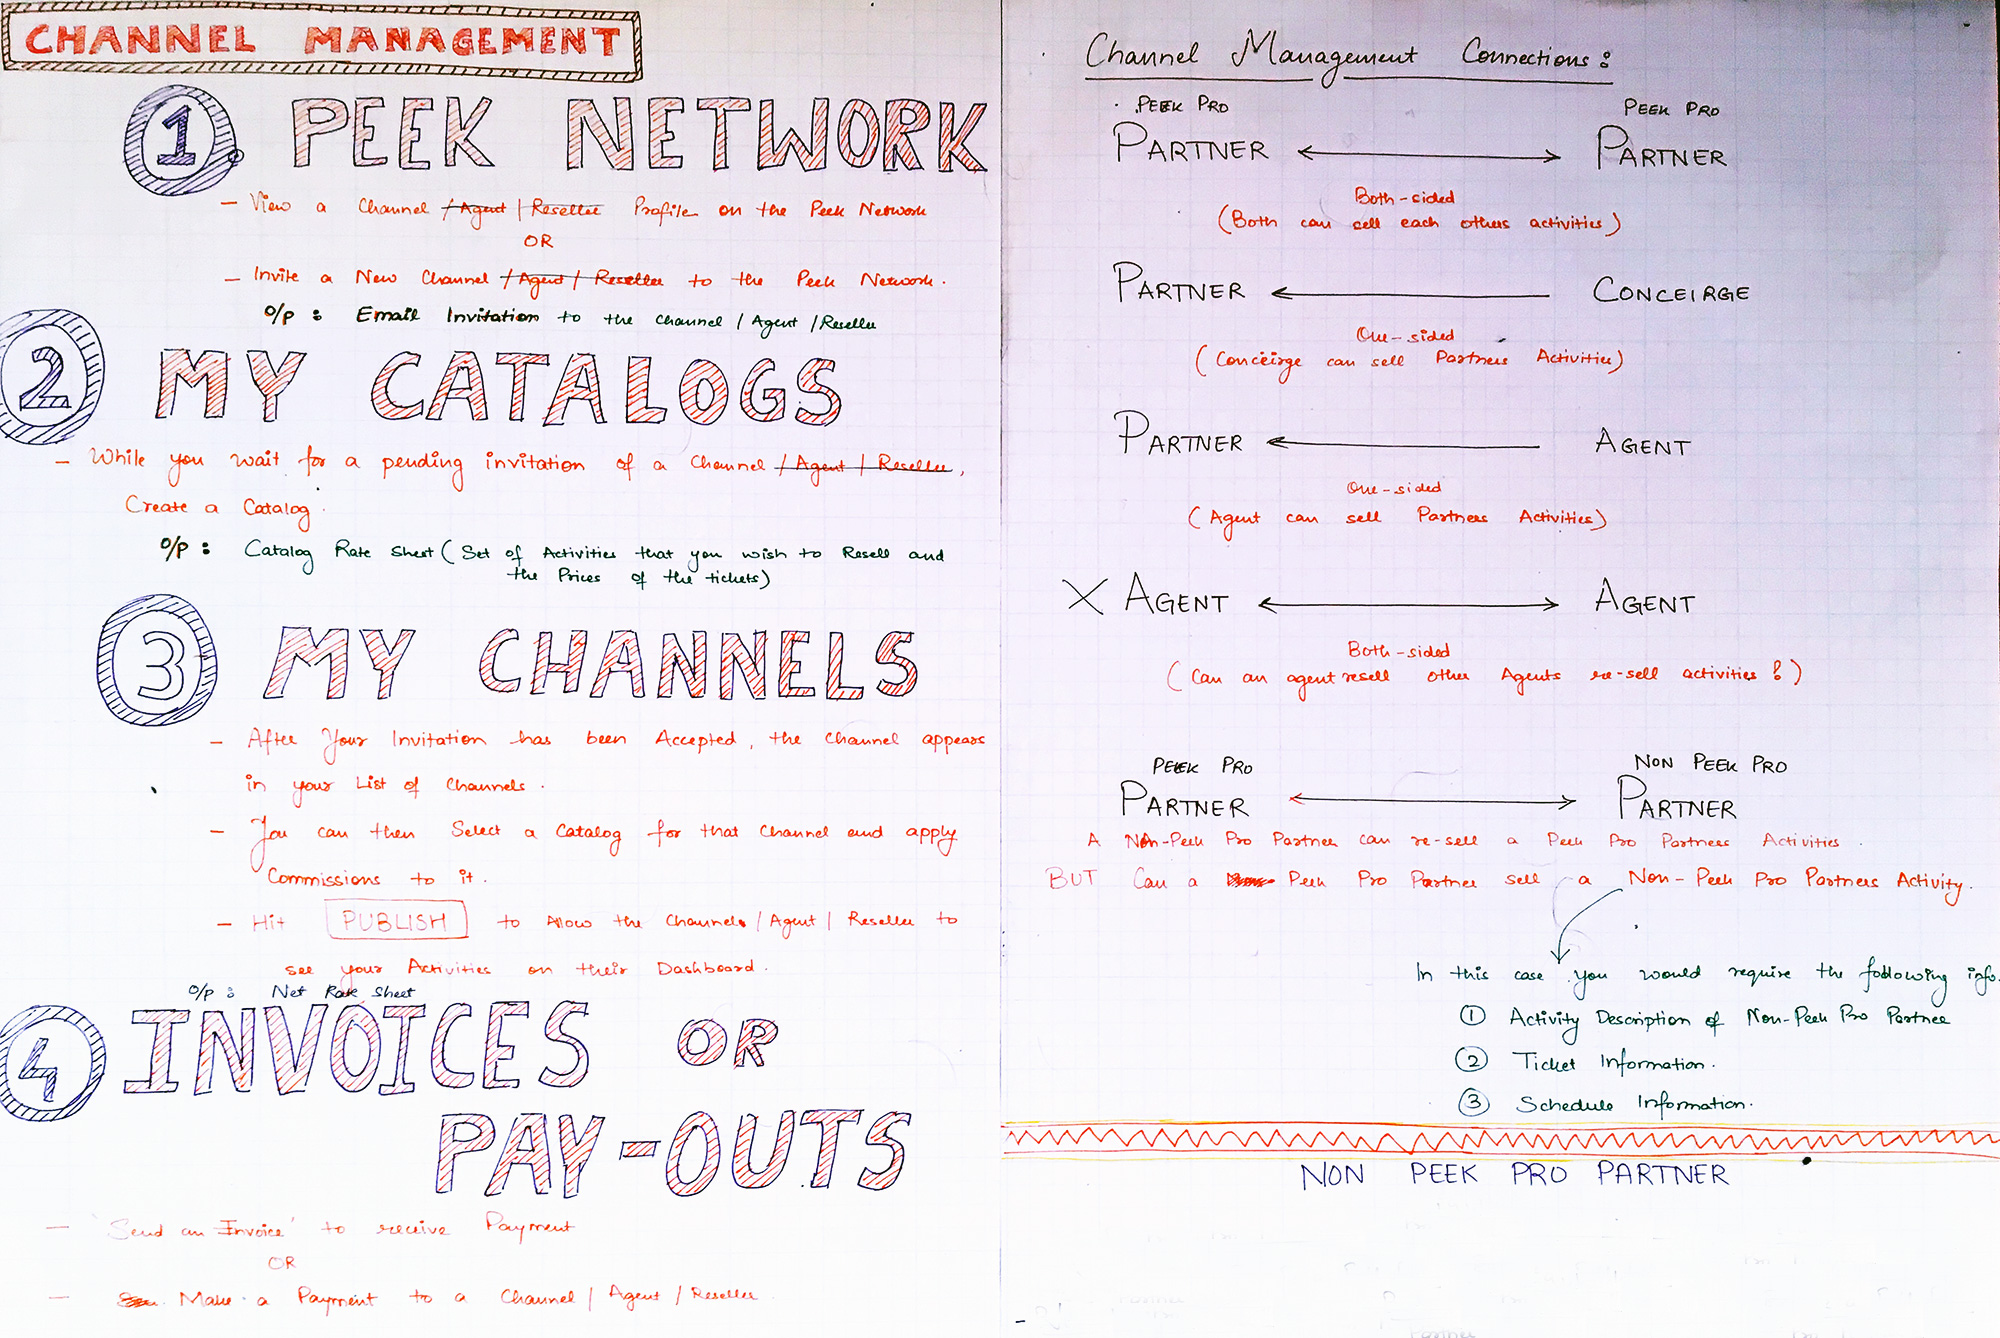 CHANNEL MANAGEMENT
1 PEEK NETWORK
– View a Channel /Agent | Reseller Profile on the Peek Network
OR
– Invite a New Channel /Agent / Reseller to the Peek Network.
O/p : Email Invitation to the Channel / Agent / Reseller
2 MY CATALOGS
– While you wait for a pending invitation of a Channel / Agent / Reseller,
Create a Catalog.
O/p : Catalog Rate Sheet ( Set of Activities that you wish to Resell and
the Prices of the tickets)
3 MY CHANNELS
– After Your Invitation has been Accepted, the Channel appears
in your List of Channels.
– You can then Select a Catalog for that Channel and apply
Commissions to it.
– Hit PUBLISH to Allow the Channels / Agent / Reseller to
see your Activities on their Dashboard.
O/p : Net Rate Sheet
4 INVOICES OR
PAY-OUTS
– 'Send an Invoice' to receive Payment
OR
– Make a Payment to a Channel / Agent / Reseller
Channel Management Connections :
PEEK PRO PEEK PRO
PARTNER ⟷ PARTNER
Both-sided
(Both can sell each others activities)
PARTNER ⟵ CONCEIRGE
One-sided
(Conceirge can sell Partners Activities)
PARTNER ⟵ AGENT
One-sided
(Agent can sell Partners Activities)
X AGENT ⟷ AGENT
Both-sided
(Can an agent resell other Agents re-sell activities ?)
PEEK PRO NON PEEK PRO
PARTNER ⟷ PARTNER
A Non-Peek Pro Partner can re-sell a Peek Pro Partners Activities.
BUT Can a Peek Pro Partner sell a Non-Peek Pro Partners Activity.
In this case you would require the following info.
1 Activity Description of Non-Peek Pro Partner
2 Ticket Information.
3 Schedule Information.
NON PEEK PRO PARTNER